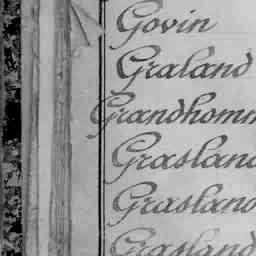 Govin
Graland
Grandhomm
Grasland
Grasland
Grasland